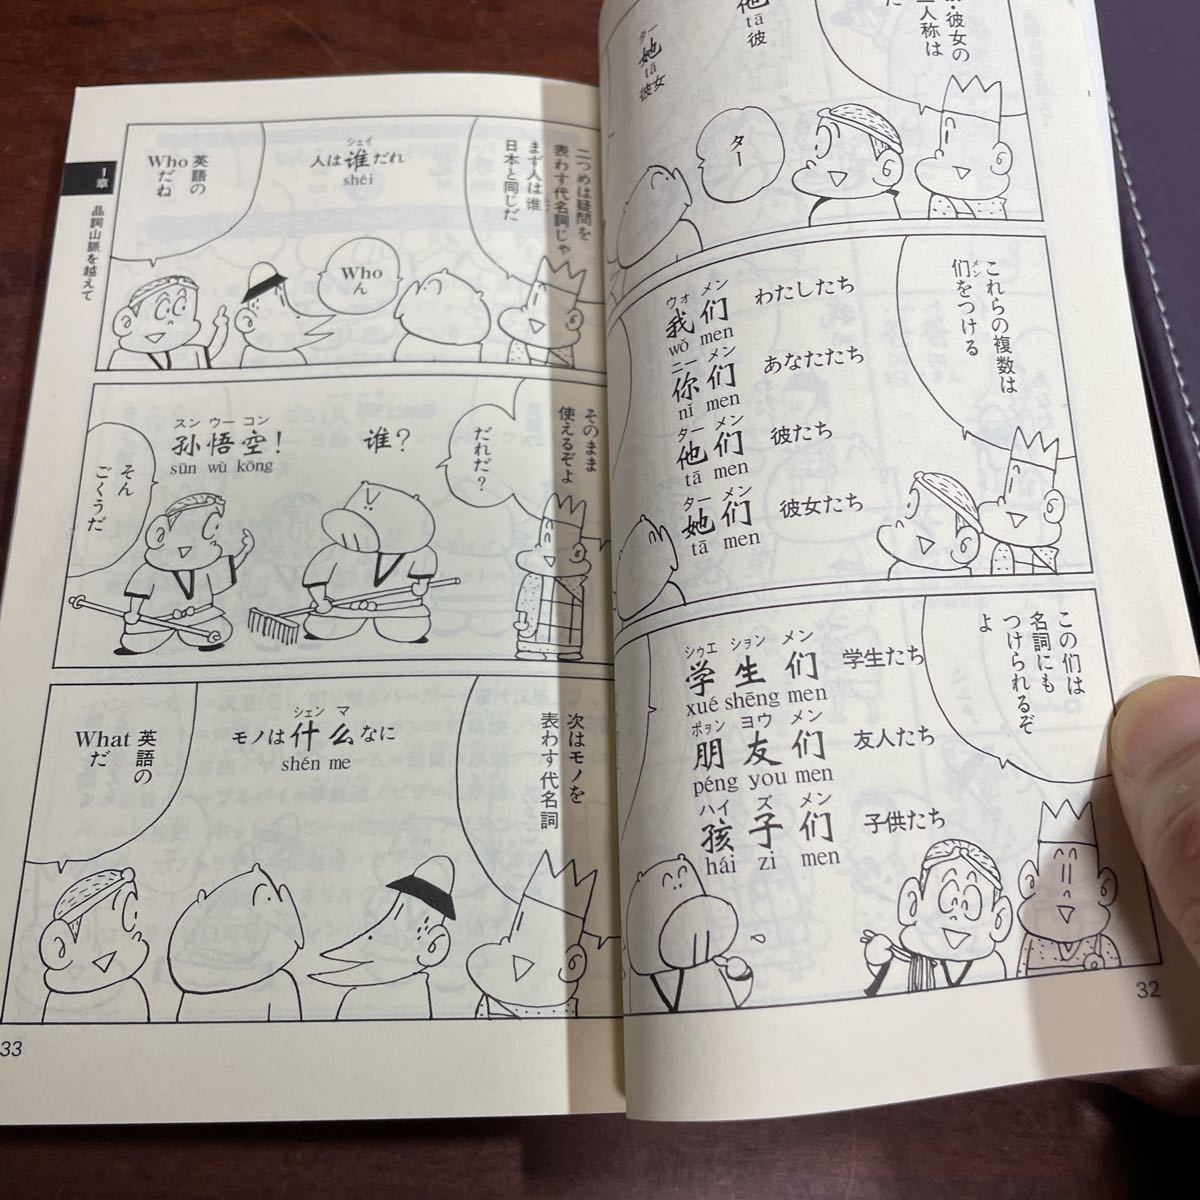 ・彼女の
人称は
他
tā
彼
ター
她
tā
彼女
ター
これらの複数は
メン
们をつける
ウォ メン
我们 わたしたち
wǒ men
ニー メン
你们 あなたたち
nǐ men
ター メン
他们 彼たち
tā men
ター メン
她们 彼女たち
tā men
この们は
名詞にも
つけられるぞ
よ
シゥエ ション メン
学生们 学生たち
xué shēng men
ポョン ヨウ メン
朋友们 友人たち
péng you men
ハイ ズ メン
孩子们 子供たち
hái zi men
32
1章 品詞山脈を越えて
二つめは疑問を
表わす代名詞じゃ
まず人は谁
日本と同じだ
シェイ
人は谁だれ
shéi
Who
ん
英語の
Who
だね
そのまま
使えるぞよ
だれだ?
谁?
スン ウー コン
孙悟空!
sūn wù kōng
そん
ごくうだ
次はモノを
表わす代名詞
シェン マ
モノは什么なに
shén me
英語の
What
だ
33